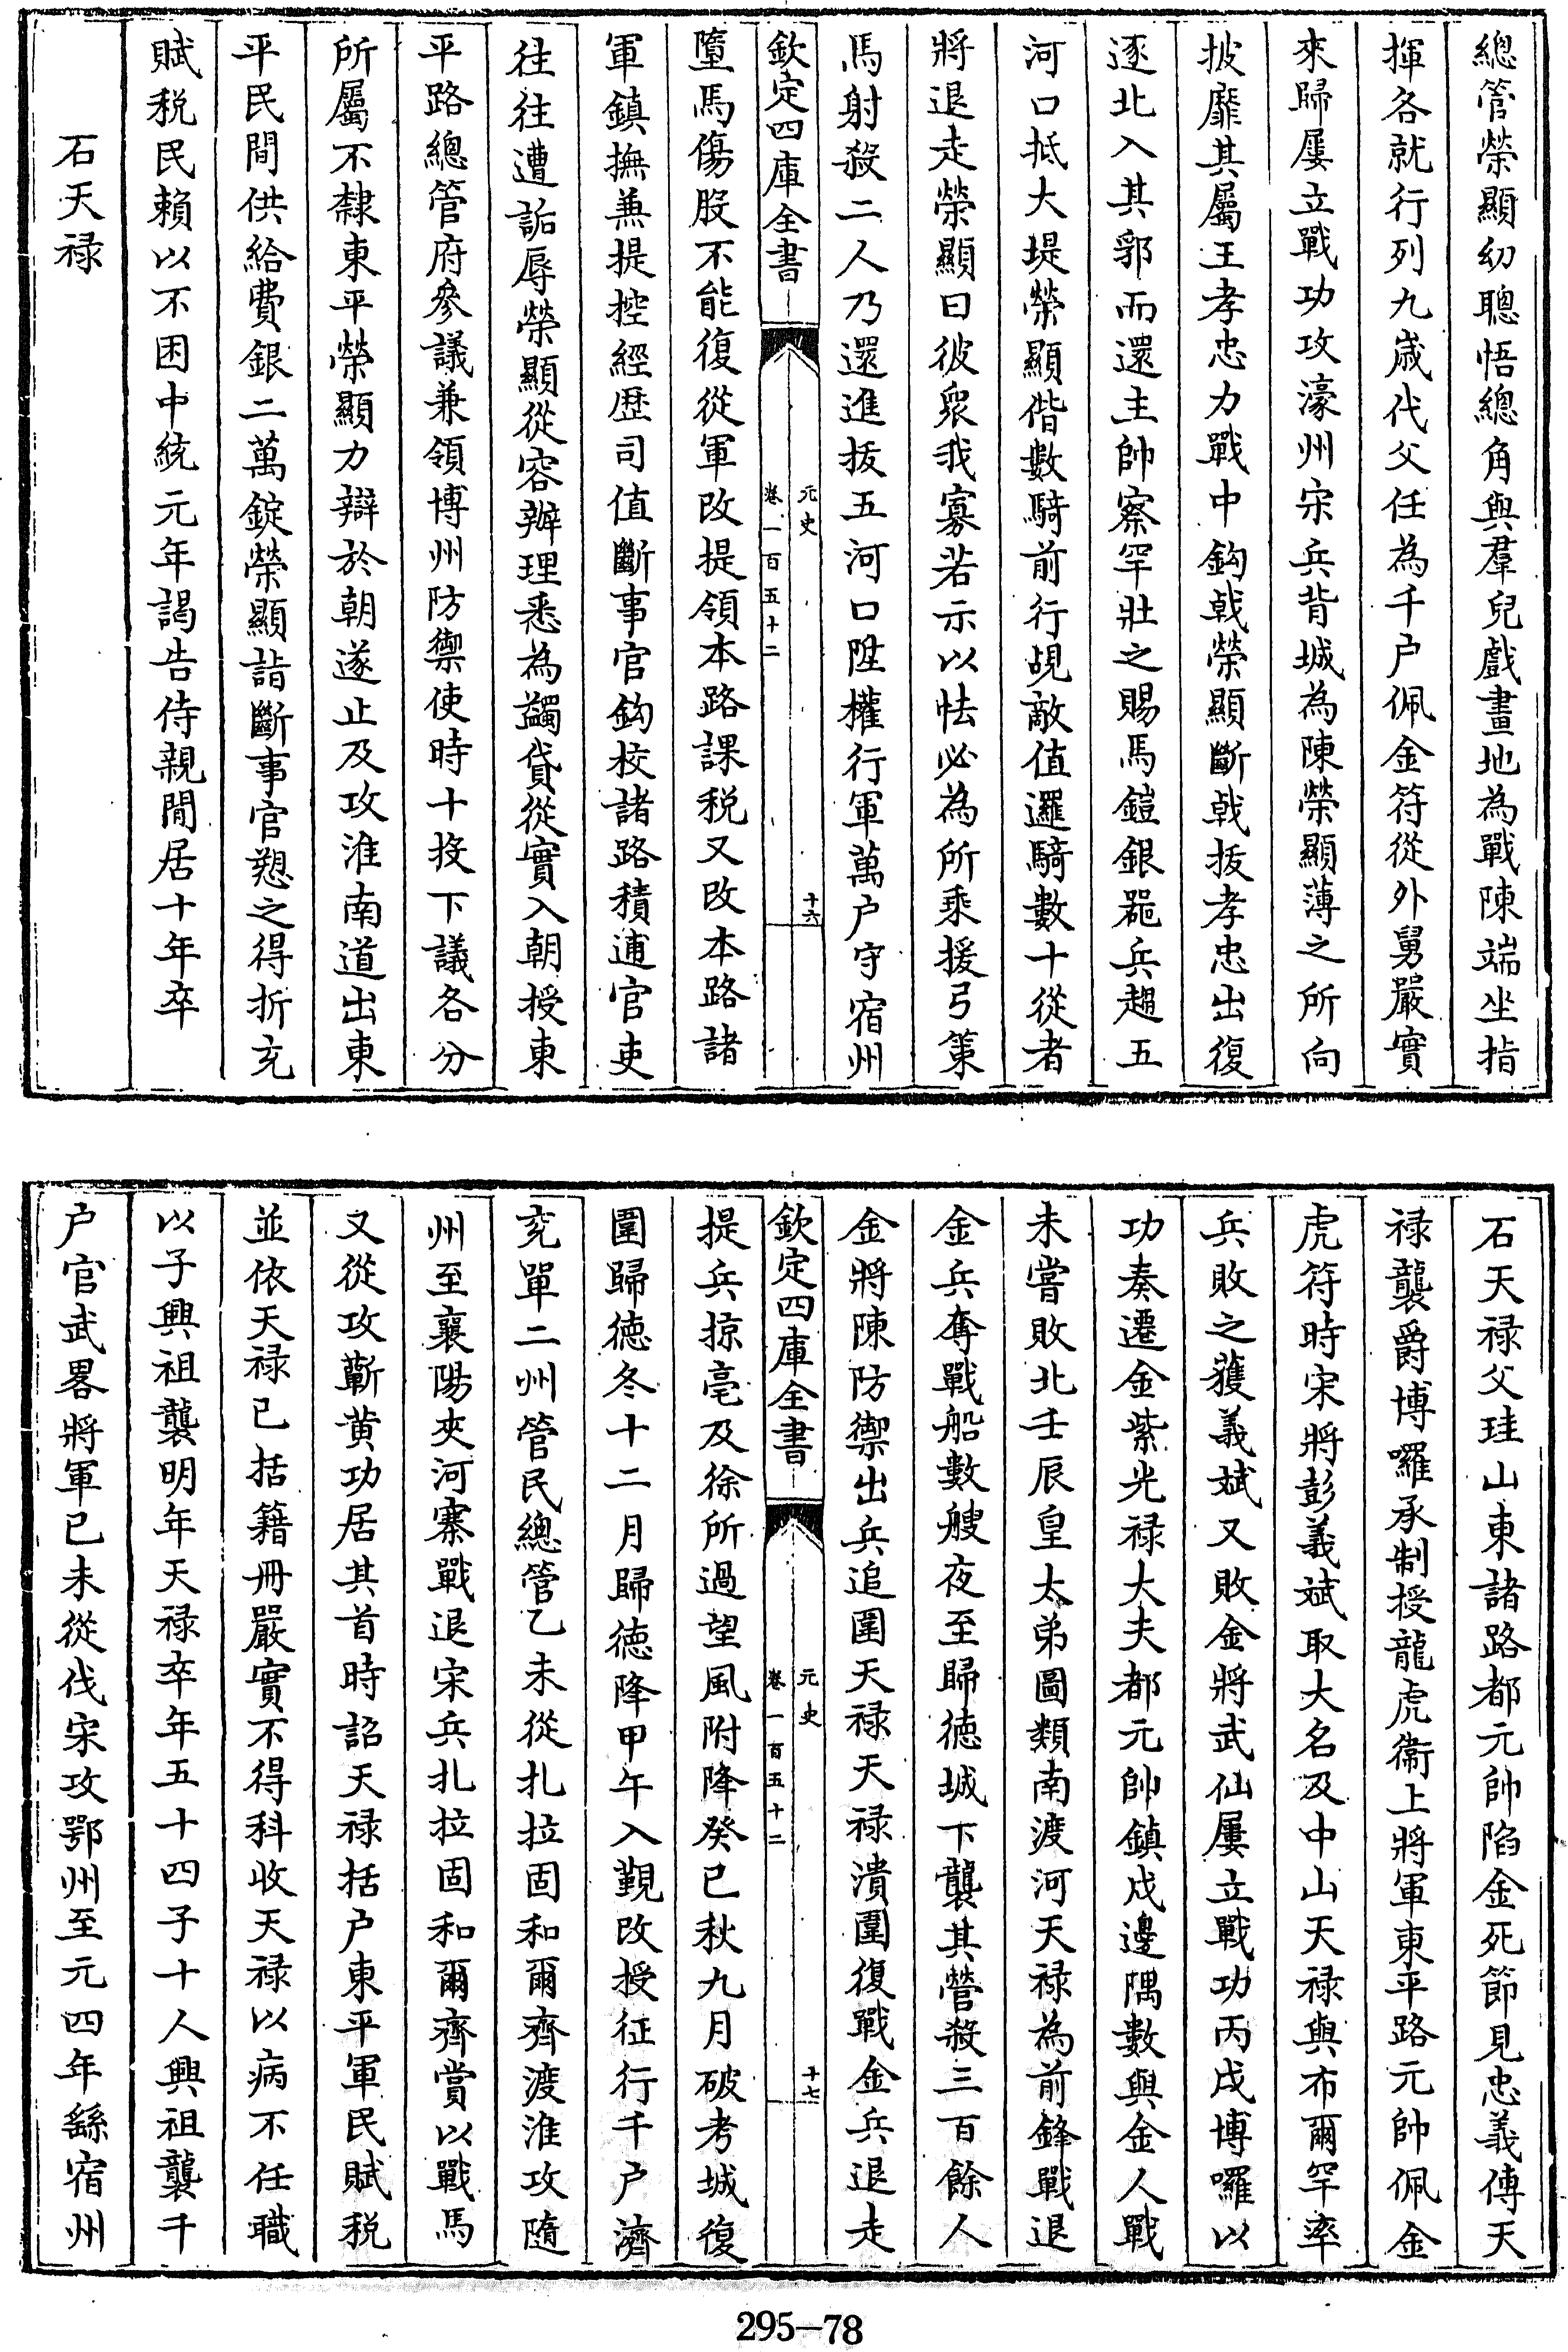 總管榮顯幼聰悟總角與羣兒戲畫地為戰陳端坐指
揮各就行列九歲代父任為千户佩金符從外舅嚴實
來歸屢立戰功攻濠州宋兵背城為陳榮顯薄之所向
披靡其屬王孝忠力戰中鈎戟榮顯斷戟拔孝忠出復
逐北入其郛而還主帥察罕壯之賜馬鎧銀器兵趨五
河口抵大堤榮顯偕數騎前行覘敵值邏騎數十從者
將退走榮顯曰彼衆我寡若示以怯必為所乘援弓策
馬射殺二人乃還進拔五河口陞權行軍萬户守宿州
欽定四庫全書
元史
卷一百五十二
十六
墮馬傷股不能復從軍改提領本路課税又改本路諸
軍鎮撫兼提控經歷司值斷事官鈎校諸路積逋官吏
往往遭詬辱榮顯從容辦理悉為蠲貸從實入朝授東
平路總管府參議兼領博州防禦使時十投下議各分
所屬不隸東平榮顯力辯於朝遂止及攻淮南道出東
平民間供給費銀二萬錠榮顯詣斷事官愬之得折充
賦税民賴以不困中統元年謁告侍親閒居十年卒
石天禄
石天禄父珪山東諸路都元帥陷金死節見忠義傳天
禄襲爵博囉承制授龍虎衞上將軍東平路元帥佩金
虎符時宋將彭義斌取大名及中山天禄與布爾罕率
兵敗之獲義斌又敗金將武仙屢立戰功丙戌博囉以
功奏遷金紫光禄大夫都元帥鎮戍邊隅數與金人戰
未嘗敗北壬辰皇太弟圖類南渡河天禄為前鋒戰退
金兵奪戰船數艘夜至歸徳城下襲其營殺三百餘人
金將陳防禦出兵追圍天禄天禄潰圍復戰金兵退走
欽定四庫全書
元史
卷一百五十二
十七
提兵掠亳及徐所過望風附降癸已秋九月破考城復
圍歸徳冬十二月歸徳降甲午入覲改授征行千户濟
兖單二州管民總管乙未從扎拉固和爾齊渡淮攻隨
州至襄陽夾河寨戰退宋兵扎拉固和爾齊賞以戰馬
又從攻蘄黄功居其首時詔天禄括户東平軍民賦税
並依天禄已括籍冊嚴實不得科收天禄以病不任職
以子興祖襲明年天禄卒年五十四子十人興祖襲千
户官武畧將軍已未從伐宋攻鄂州至元四年繇宿州
295-78